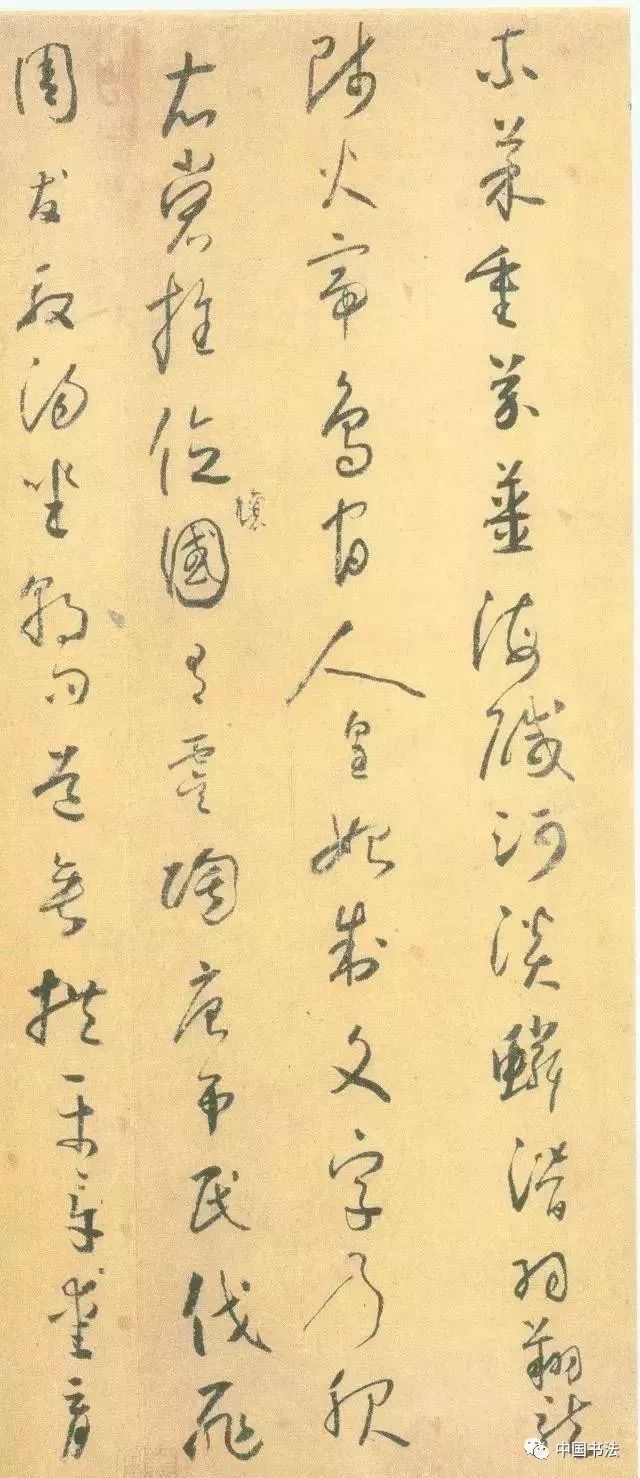 柰菜重芥薑海醎河淡鱗潛羽翔龍
師火帝鳥官人皇始制文字乃服
衣裳推位讓國有虞陶唐弔民伐罪
周發殷湯坐朝問道垂拱平章愛育
中国书法